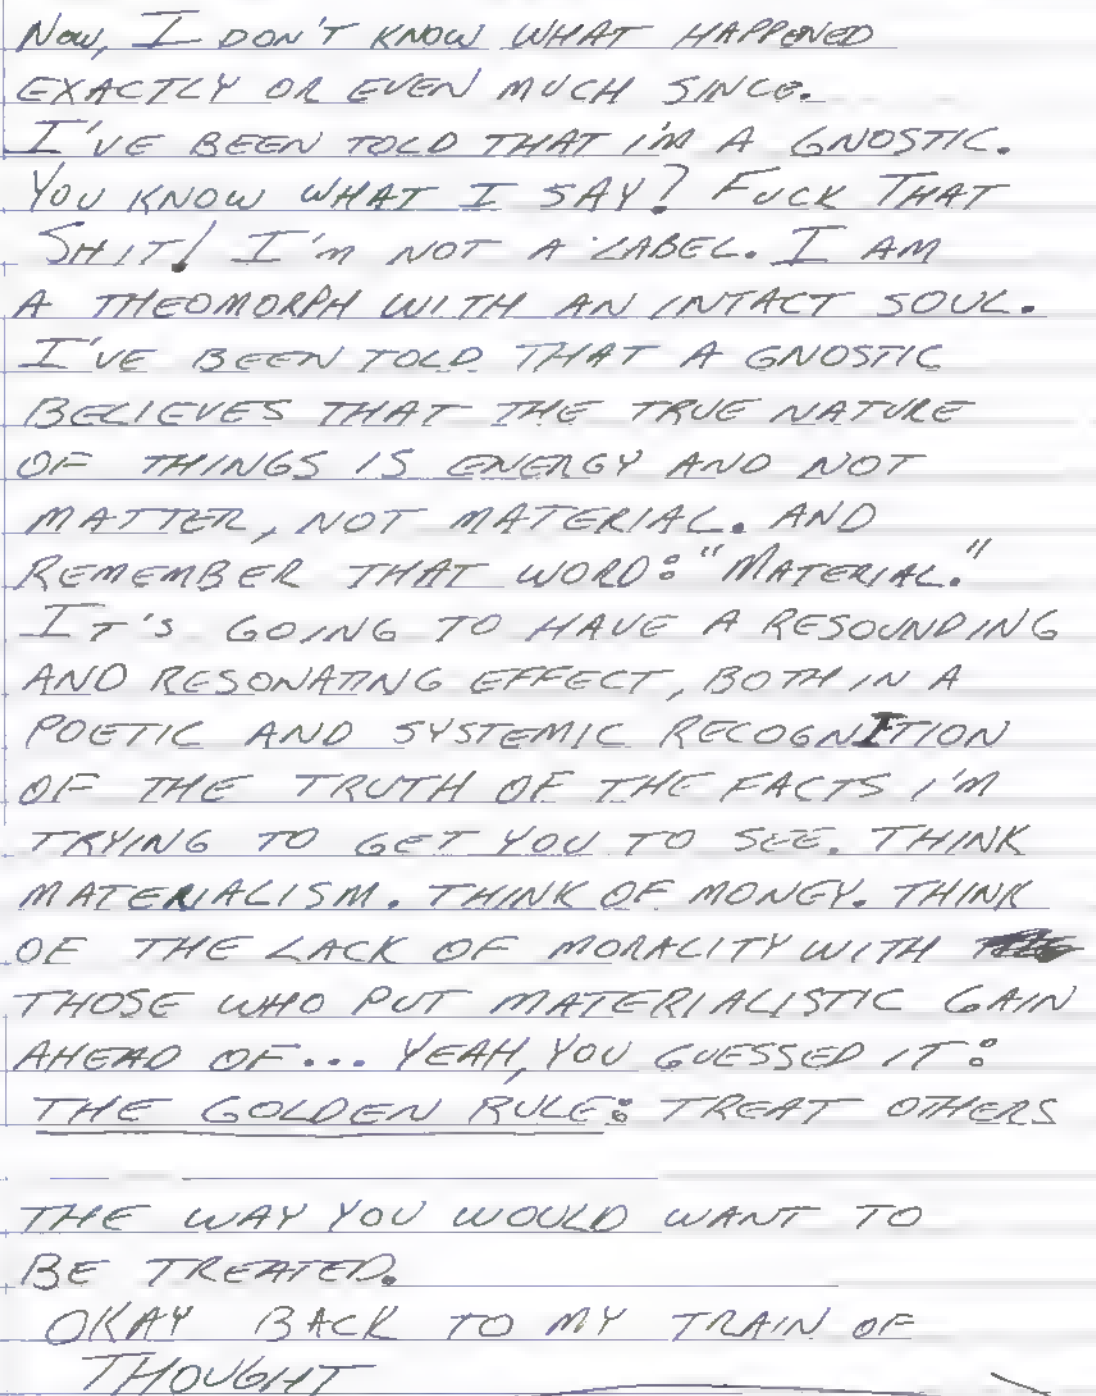 Now, I DON'T KNOW WHAT HAPPENED
EXACTLY OR EVEN MUCH SINCE.
I'VE BEEN TOLD THAT I'M A GNOSTIC.
YOU KNOW WHAT I SAY? FUCK THAT
SHIT! I'M NOT A LABEL. I AM
A THEOMORPH WITH AN INTACT SOUL.
I'VE BEEN TOLD THAT A GNOSTIC
BELIEVES THAT THE TRUE NATURE
OF THINGS IS ENERGY AND NOT
MATTER, NOT MATERIAL. AND
REMEMBER THAT WORD: "MATERIAL."
IT'S GOING TO HAVE A RESOUNDING
AND RESONATING EFFECT, BOTH IN A
POETIC AND SYSTEMIC RECOGNITION
OF THE TRUTH OF THE FACTS I'M
TRYING TO GET YOU TO SEE. THINK
MATERIALISM. THINK OF MONEY. THINK
OF THE LACK OF MORALITY WITH
THOSE WHO PUT MATERIALISTIC GAIN
AHEAD OF... YEAH, YOU GUESSED IT:
THE GOLDEN RULE: TREAT OTHERS
THE WAY YOU WOULD WANT TO
BE TREATED.
OKAY BACK TO MY TRAIN OF
THOUGHT